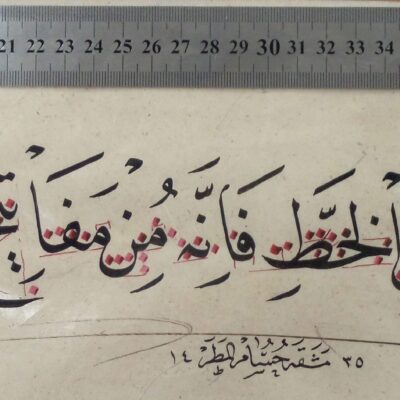 21 22 23 24 25 26 27 28 29 30 31 32 33 34
الخَطِّ فَاِنَّهُ مِنْ مَفَاتِيح
٣٥ مشقه حسام المطر ١٤